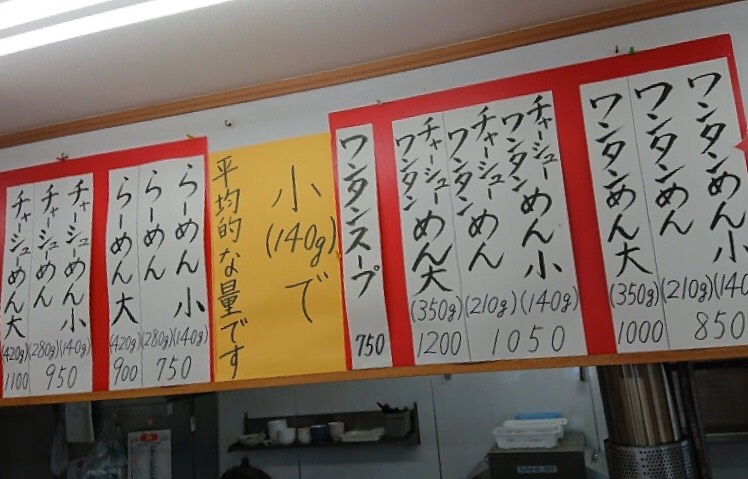 ワンタンめん小(140
ワンタンめん(210g)
850
ワンタンめん大(350g)
1000
チャーシューワンタンめん小(140g)
チャーシューワンタンめん(210g)
1050
チャーシューワンタンめん大(350g)
1200
ワンタンスープ
750
小(140g)で
平均的な量です
らーめん小(140g)
らーめん(280g)
750
らーめん大(420g)
900
チャーシューめん小(140g)
チャーシューめん(280g)
950
チャーシューめん大(420g)
1100